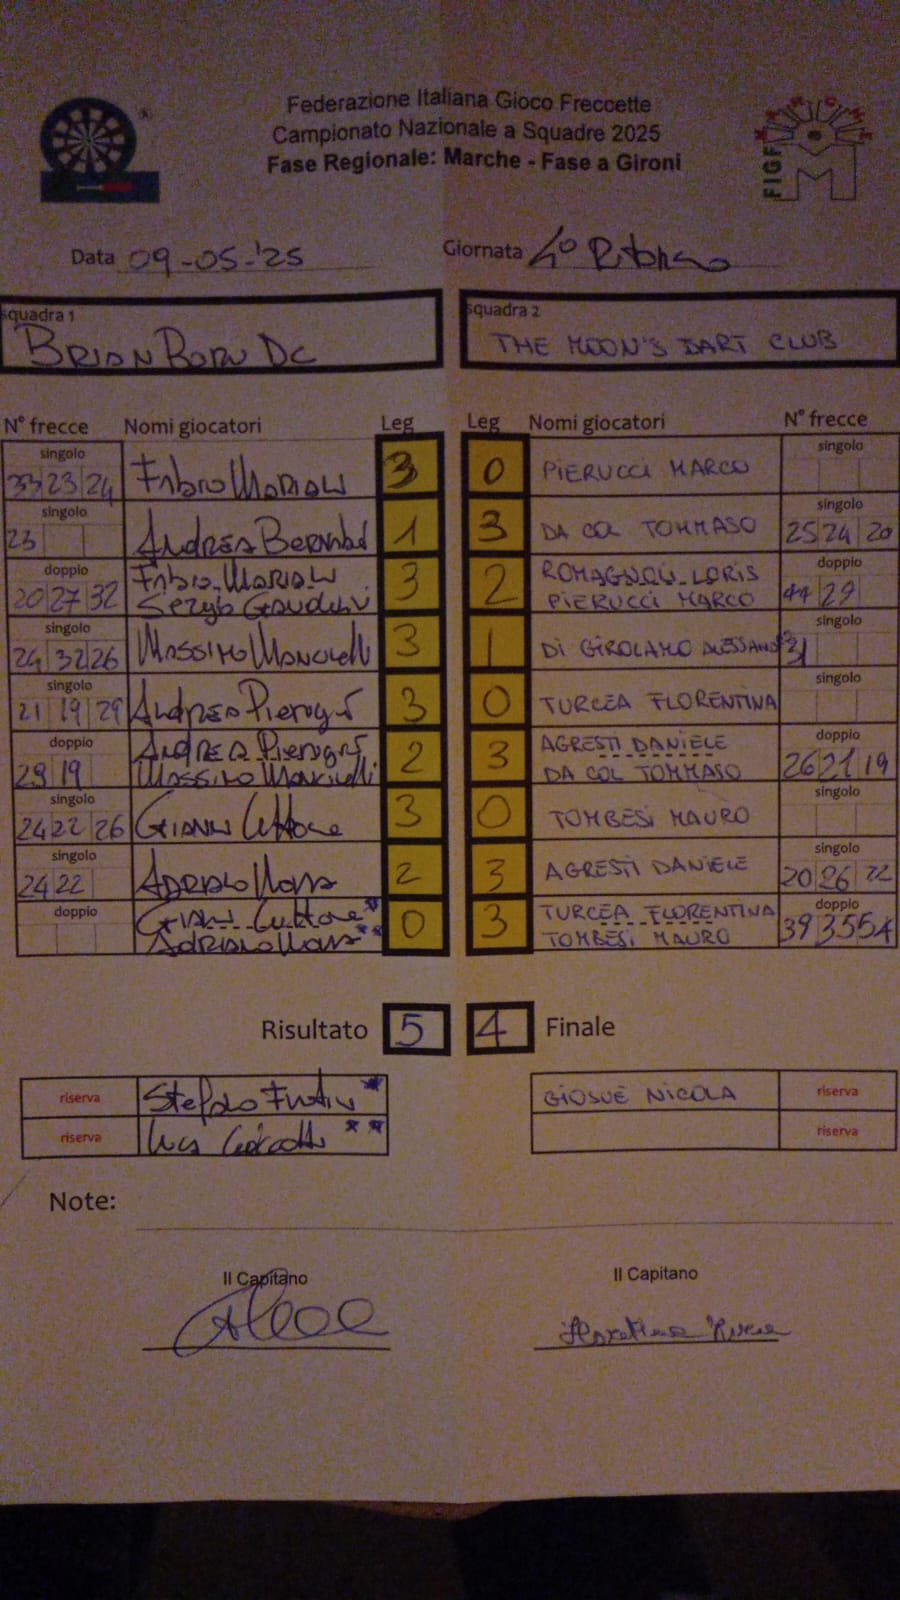 Federazione Italiana Gioco Freccette
Campionato Nazionale a Squadre 2025
Fase Regionale: Marche - Fase a Gironi
MARCHE
FIGF M
Data 09-05-'25 Giornata 4° Ritorno
squadra 1 squadra 2
BRIAN BORU DC THE MOON'S DART CLUB
N° frecce Nomi giocatori Leg Leg Nomi giocatori N° frecce
singolo singolo
33 23 24 Fabio Mariani 3 0 PIERUCCI MARCO
singolo singolo
23 Andrea 1 3 DA COL TOMMASO 25 24 20
doppio Fabio Mariani ROMAGNOLI LORIS doppio
20 27 32 Sergio 3 2 PIERUCCI MARCO 44 29
singolo singolo
24 32 26 Massimo Moncirelli 3 1 DI GIROLAMO 31
singolo singolo
21 19 29 Andrea Pierugi 3 0 TURCEA FLORENTINA
doppio Andrea Pierugi AGRESTI DANIELE doppio
29 19 Massimo Moncirelli 2 3 DA COL TOMMASO 26 21 19
singolo singolo
24 22 26 3 0 TOMBESI MAURO
singolo singolo
24 22 Adriano 2 3 AGRESTI DANIELE 20 26 22
doppio * TURCEA FLORENTINA doppio
Adriano ** 0 3 TOMBESI MAURO 39 35 54
Risultato 5 4 Finale
riserva Stefano * GIOSUÈ NICOLA riserva
riserva Luca ** riserva
Note:
Il Capitano Il Capitano